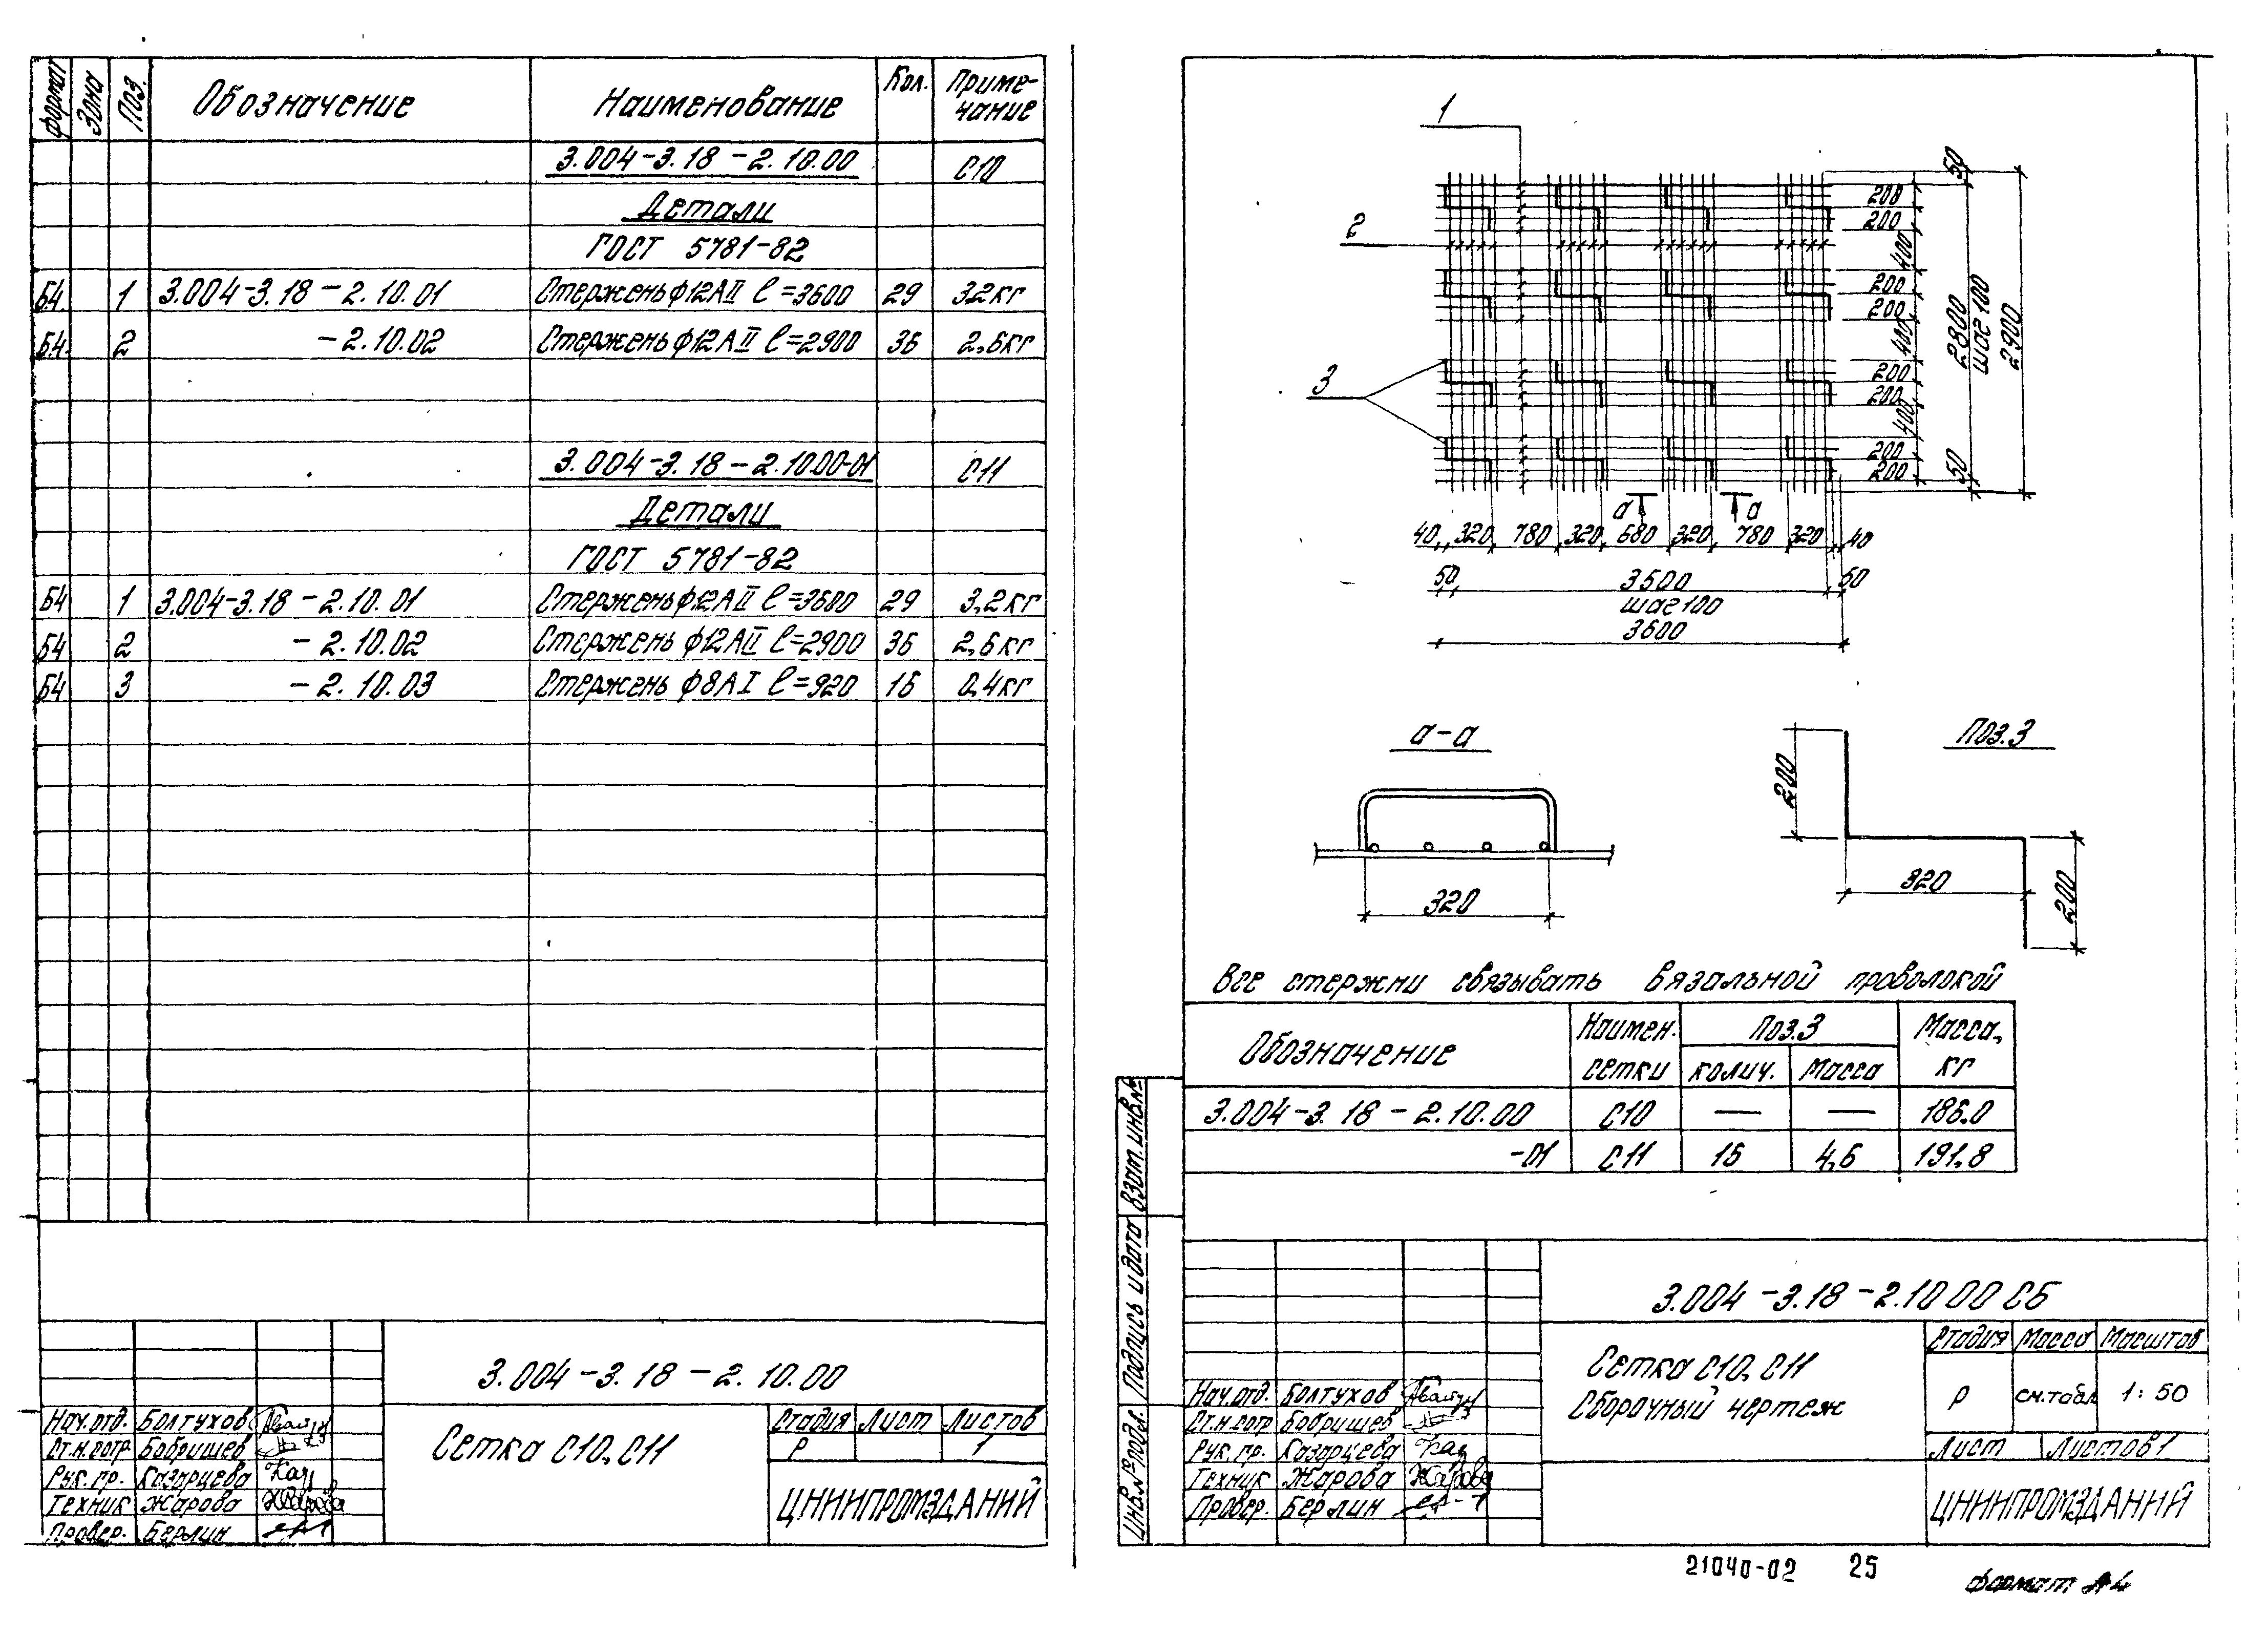 Формат Зона Поз. Обозначение Наименование Кол. Приме-
чание
3.004-3.18-2.10.00 С10
Детали
ГОСТ 5781-82
Б4 1 3.004-3.18-2.10.01 Стержень ф12АII ℓ=3600 29 3,2кг
Б4 2 -2.10.02 Стержень ф12АII ℓ=2900 36 2,6кг
3.004-3.18-2.10.00-01 С11
Детали
ГОСТ 5781-82
Б4 1 3.004-3.18-2.10.01 Стержень ф12АII ℓ=3600 29 3,2кг
Б4 2 -2.10.02 Стержень ф12АII ℓ=2900 36 2,6кг
Б4 3 -2.10.03 Стержень ф8АI ℓ=920 16 0,4кг
3.004-3.18-2.10.00
Нач.отд. Болтухов
Ст.н.сотр Бобришев
Рук.гр. Казарцева
Техник Жарова
Провер. Берлин
Сетка С10, С11
Стадия Лист Листов
Р 1
ЦНИИПРОМЗДАНИЙ
1
2
3
200
200
400
200
200
400
200
200
400
200
200
50
2800
шаг 100
50
2900
а а
40 320 780 320 680 320 780 320 40
50 3500 50
шаг 100
3600
а-а
320
Поз.3
200
320
200
Все стержни связывать вязальной проволокой
Обозначение Наимен.
сетки Поз.3 Масса,
кг
колич. Масса
3.004-3.18-2.10.00 С10 — — 186.0
-01 С11 16 4,6 191,8
Взам. инв.№
Подпись и дата
Инв.№подл.
3.004-3.18-2.10 00 СБ
Нач.отд. Болтухов
Ст.н.сотр Бобришев
Рук.гр. Казарцева
Техник Жарова
Провер. Берлин
Сетка С10, С11
Сборочный чертеж
Стадия Масса Масштаб
Р см.табл 1:50
Лист Листов 1
ЦНИИПРОМЗДАНИЙ
21040-02 25
формат А4